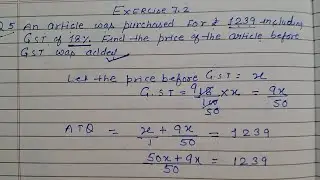 EXERCISE 7.2
Q5 An article was purchased for ₹ 1239 including
GST of 18%. Find the price of the article before
GST was added
Let the price before GST = x
G.ST = 9 18/100 50 × x = 9x/50
ATQ = x/1 + 9x/50 = 1239
50x + 9x/50 = 1239